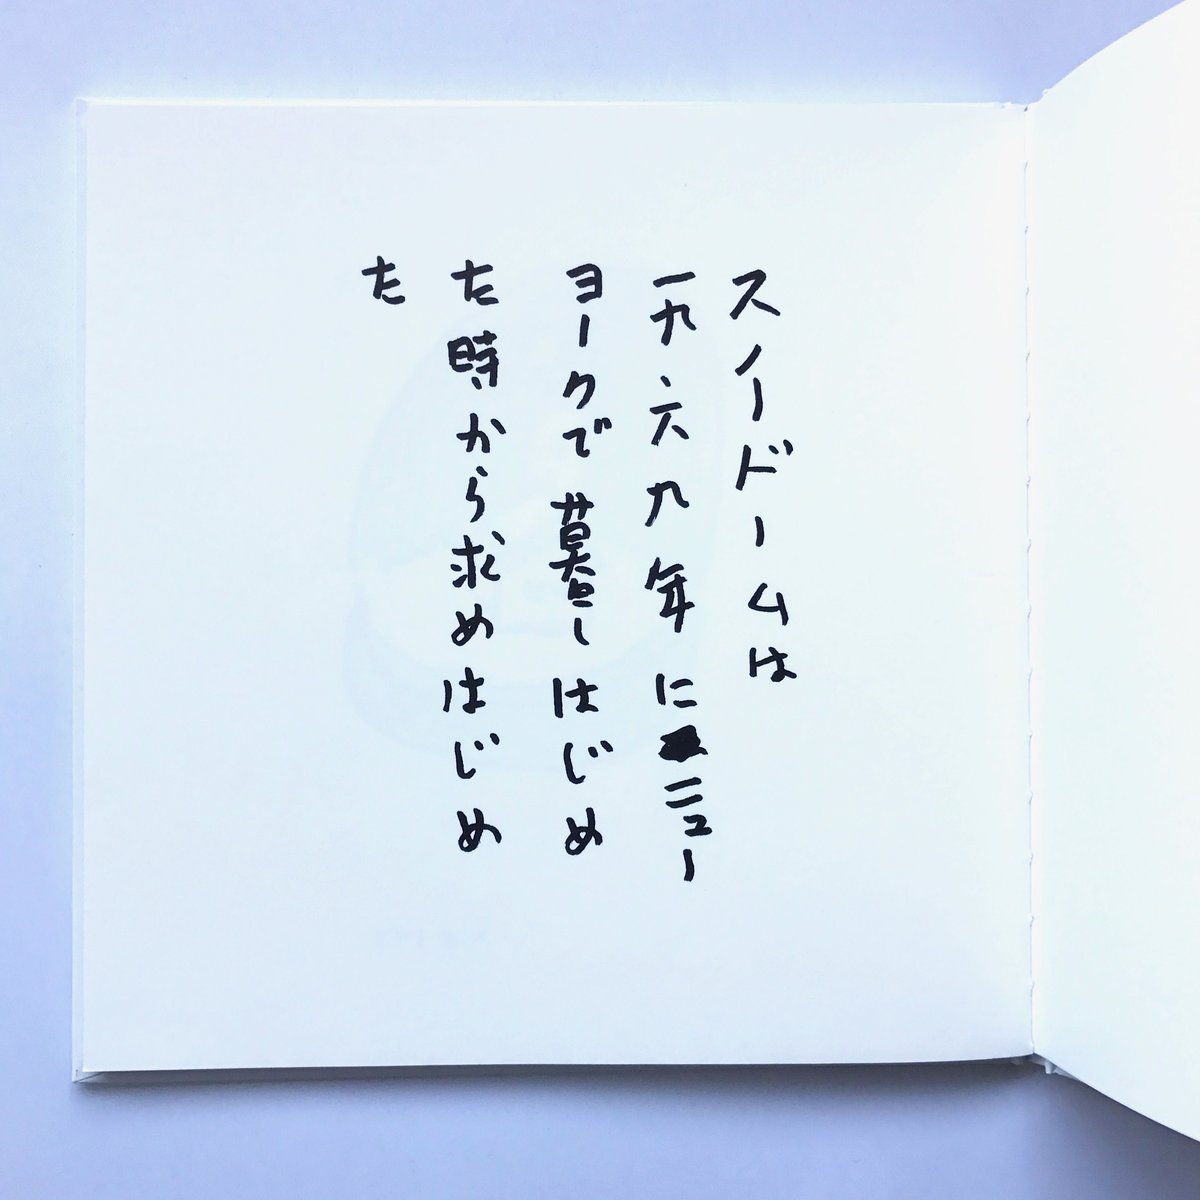 スノードームは
一九六九年にニュー
ヨークで暮しはじめ
た時から求めはじめ
た